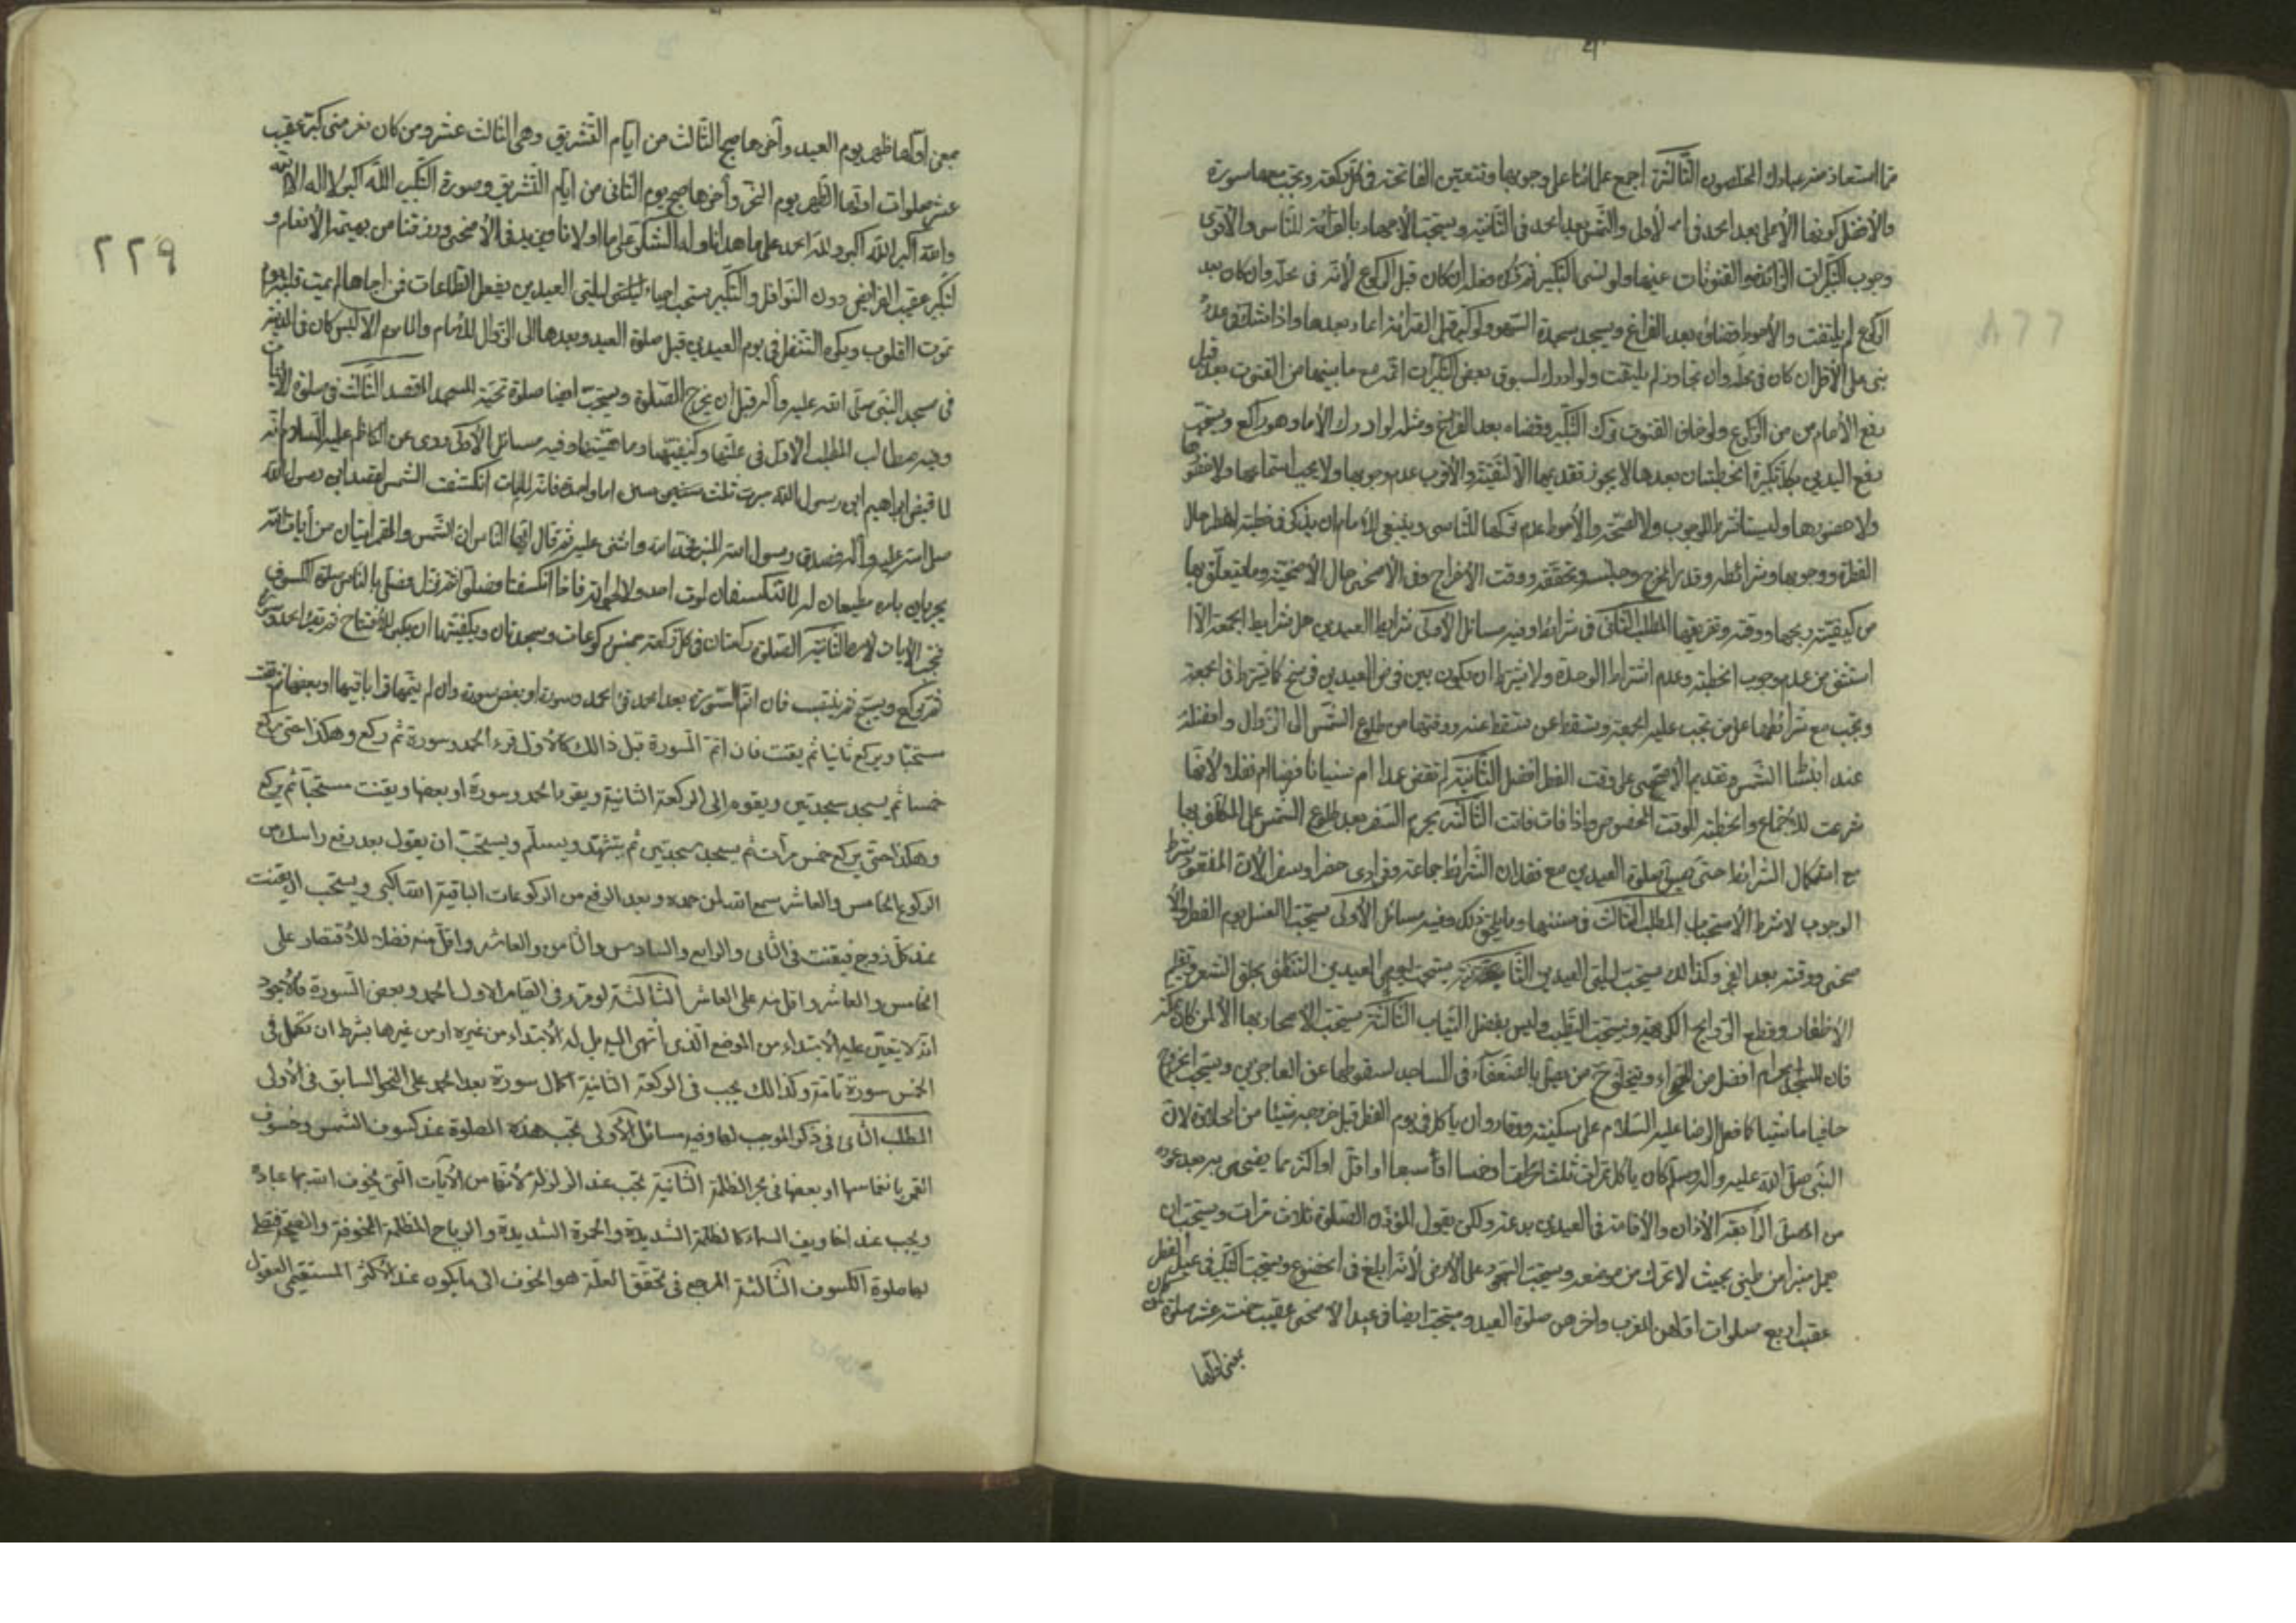 ما استعاذ منه عبادك المخلصون الثالثة اجمع علمائنا على وجوبها وتتعين الفاتحة في كل ركعة ويجب معها سورة
والأفضل كونها الأعلى بعد الحمد في الأول والشمس بعد الحمد في الثانية ويستحب الأجهار بالقرائة للناس والأقوى
وجوب التكبيرات الزائدة والقنوتات عينها ولو نسى التكبير ثم ذكره فعله ان كان قبل الركوع لأنه في محله وان كان بعد
الركوع لم يلتفت والأحوط قضائه بعد الفراغ ويسجد سجدة السهو ولو كبر قبل القرائة اعاد بعدها واذا شك في عدد
بنى على الأقل ان كان في محله وان تجاوز لم يلتفت ولو ادرك المسبوق بعض التكبيرات اتمه مع ما بينهما من القنوت بعد قبل
رفع الأمام من الركوع ولو خاف الفوت ترك التكبير وقضاه بعد الفراغ ومثله لو ادرك الأمام وهو راكع ويستحب
رفع اليدين بكل تكبيرة الخطبتان بعدها لا يجوز تقديمها الا لتقية والأقرب عدم وجوبها ولا يجب استماعها
ولا حضورها وليستا شرطا للوجوب ولا للصحة والأحوط عدم تركها للتاسى وينبغى للأمام ان يذكر في خطبة الفطر حال
الفطرة ووجوبها وشرائطه وقدر المخرج وجنسه ومستحقه ووقت الأخراج وفي الأضحى حال الأضحية وما يتعلق بها
من كيفيته وبحها ووقته وتفريقها المطلب الثاني في شرائطها وفيه مسائل الأولى شرايط العيدين هي شرايط الجمعة الا ما
استثنى من عدم وجوب الخطبة وعدم اشتراط الوحدة ولا يشترط ان يكون بين فرضى العيدين فرسخ كما يشترط في الجمعة
وتجب مع شرائطها على من تجب عليه الجمعة وتسقط عن من تسقط عنه ووقتها من طلوع الشمس الى الزوال وافضله
عند انبساط الشمس وتقديم الأضحى على وقت الفطر افضل الثانية لم تقض عمدا ام نسيانا فرضا ام نفلا لأنها
شرعت للأجتماع والخطبة الوقت المخصوص واذا فات فاتت الثالثة يحرم السفر بعد طلوع الشمس على المكلف بها
مع استكمال الشرائط حتى يصلى صلوة العيدين مع فقدان الشرائط جماعة وفرادى حضرا وسفرا لأن المفقود شرط
الوجوب لا شرط الاستحباب المطلب الثالث في سننها وما يلحق ذلك وفيه مسائل الأولى يستحب الغسل يوم الفطر والأ
ضحى ووقته بعد الفجر وكذا لك يستحب ليلتى العيدين الثانية يستحب ليومى العيدين التنظف بحلق الشعر وتقليم
الأظفار وقطع الروايح الكريهة ويستحب التطيب وليس بفضل الثياب الثالثة يستحب الاصحار بها الا لمن كان بمكة
فان المسجد الحرام افضل من الصحراء ويستحب ان يخرج من يصلى بالضعفاء في المساجد لسقوطها عن العاجزين ويستحب الخروج
حافيا ماشيا كما فعل الرضا عليه السلام على سكينة ووقار وان يأكل في يوم الفطر قبل خروجه شيئا من الحلاوة لأن
النبى صلى الله عليه وآله وسلم كان يأكل تمرات ثلثا او خمسا او سبعا او اقل او اكثر مما يضحى به بعد عوده
من المصلى الرابعة الأذان والأقامة في العيدين بدعة ولكن يقول المؤذن الصلوة ثلاث مرات ويستحب ان
يعمل منبرا من طين بحيث لا تحرك من موضعه ويستحب السجود على الأرض لأنه ابلغ في الخضوع ويستحب التكبير في عيد الفطر
عقيب اربع صلوات اولهن المغرب واخرهن صلوة العيد ويستحب ايضا في عيد الأضحى عقيب خمسة عشر صلوة
بمعنى اولها
بمعنى اولها ظهر يوم العيد وآخرها صبح الثالث من ايام التشريق وهى الثالث عشر ومن كان بغير منى كبر عقيب
عشر صلوات اولها الظهر يوم النحر وآخرها صبح يوم الثانى من ايام التشريق وصورة التكبير الله اكبر لا اله الا الله
والله اكبر الله اكبر ولله الحمد على ما هدانا وله الشكر على ما اولانا ويزيد في الأضحى ورزقنا من بهيمة الأنعام و
لتكبير عقيب الفرايض دون النوافل والتكبير يستحب احياء ليلتى العيدين بفعل الطاعات فمن احياها لم يمت قلبه يوم
تموت القلوب ويكره التنفل في يوم العيدين قبل صلوة العيد وبعدها الى الزوال للأمام والمأموم الا لمن كان في المدينة
في مسجد النبى صلى الله عليه وآله قبل ان يخرج للصلوة ويستحب ايضا صلوة تحية المسجد المقصد الثالث في صلوة الأيات
وفيه مطالب المطلب الاول في علتها وكيفيتها وماهيتها وفيه مسائل الأولى روى عن الكاظم عليه السلام انه
لما قبض ابراهيم ابن رسول الله جرت ثلث سنن اما واحدة فانه لما مات انكسفت الشمس لفقد ابن رسول الله
صلى الله عليه وآله فصعد رسول الله المنبر فحمد الله واثنى عليه ثم قال ايها الناس ان الشمس والقمر آيتان من آيات الله
يجريان بامره مطيعان له لا تنكسفان لموت احد ولا لحيوته فاذا انكسفتا فصلوا ثم نزل فصلى بالناس صلوة الكسوف
الثانية الصلوة ركعتان في كل ركعة خمس ركوعات وسجدتان وكيفيتها ان يكبر للأفتتاح ثم يقرء الحمد وسورة
ثم يركع ويسبح ثم ينتصب فان اتم السورة بعد الحمد قرء الحمد وسورة او بعض سورة وان لم يتمها قرا باقيها او بعضها ثم يقنت
مستحبا ويركع ثانيا ثم يقنت فان اتم السورة قبل ذالك كالأول قرء الحمد وسورة ثم ركع وهكذا حتى يركع
خمسا ثم يسجد سجدتين ويقوم الى الركعة الثانية ويقرء الحمد وسورة او بعضها ويقنت مستحبا ثم يركع
وهكذا حتى يركع خمس مرات ثم يسجد سجدتين ثم يتشهد ويسلم ويستحب ان يقول بعد رفع راسك من
الركوع الخامس والعاشر سمع الله لمن حمده وبعد الرفع من الركوعات الباقية الله اكبر ويستحب ان يقنت
عند كل زوج فيقنت في الثانى والرابع والسادس والثامن والعاشر واقل منه فضلا للأقتصار على
الخامس والعاشر واقل منه على العاشر الثالثة لو قرء في القيام الاول الحمد وبعض السورة فالأجود
انه لا يتعين عليه الأبتداء من الموضع الذى انتهى اليه بل له الأبتداء من غيره او من غيرها بشرط ان تكمل في
الخمس سورة تامة وكذا لك يجب في الركعة الثانية اكمال سورة بعد الحمد على النحو السابق في الأولى
المطلب الثانى في ذكر الموجب لها وفيه مسائل الأولى تجب هذه الصلوة عند كسوف الشمس وخسوف
القمر بانغماسها او بعضها في بحر الظلمة الثانية تجب عند الزلزلة لأنها من الأيات التى يخوف الله بها عباده
ويجب عند اخاويف السماء كالظلمة الشديدة والحمرة الشديدة والرياح المظلمة المخوفة والصيحة فيصلى
لها صلوة الكسوف الثالثة المرجع في تحقق العلة هو الخوف الى ما يكون عند اكثر المستقيمى العقول
٢٢٩